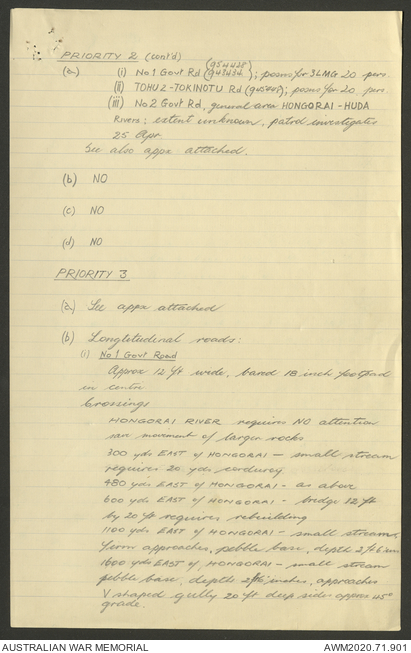 PRIORITY 2 (cont'd)
(a) (i) No 1 Govt Rd (954438 948434); posns for 3 LMG 20 pers
(ii) TOHU 2 - TOKINOTU Rd; posns for 20 pers
(iii) No 2 Govt Rd, general area HONGORAI - HUDA
Rivers; extent unknown, patrol investigates
25 Apr.
See also appx attached.
(b) NO
(c) NO
(d) NO
PRIORITY 3
(a) See appx attached
(b) Longtitudinal roads:
(i) No 1 Govt Road
Approx 12 ft wide, bared 18 inch footpad
in centre
Crossings
HONGORAI RIVER requires NO attention
save movement of larger rocks
300 yds EAST of HONGORAI - small stream
requires 20 yds corduroy
480 yds EAST of HONGORAI - as above
600 yds EAST of HONGORAI - bridge 12 ft
by 20 ft requires rebuilding
1100 yds EAST of HONGORAI - small stream,
firm approaches, pebble base, depth 2 ft 6 ins
1600 yds EAST of HONGORAI - small stream
pebble base, depth 2 ft 6 inches, approaches
V shaped gully 20 ft deep sides approx 45°
grade.
AUSTRALIAN WAR MEMORIAL
AWM2020.71.901